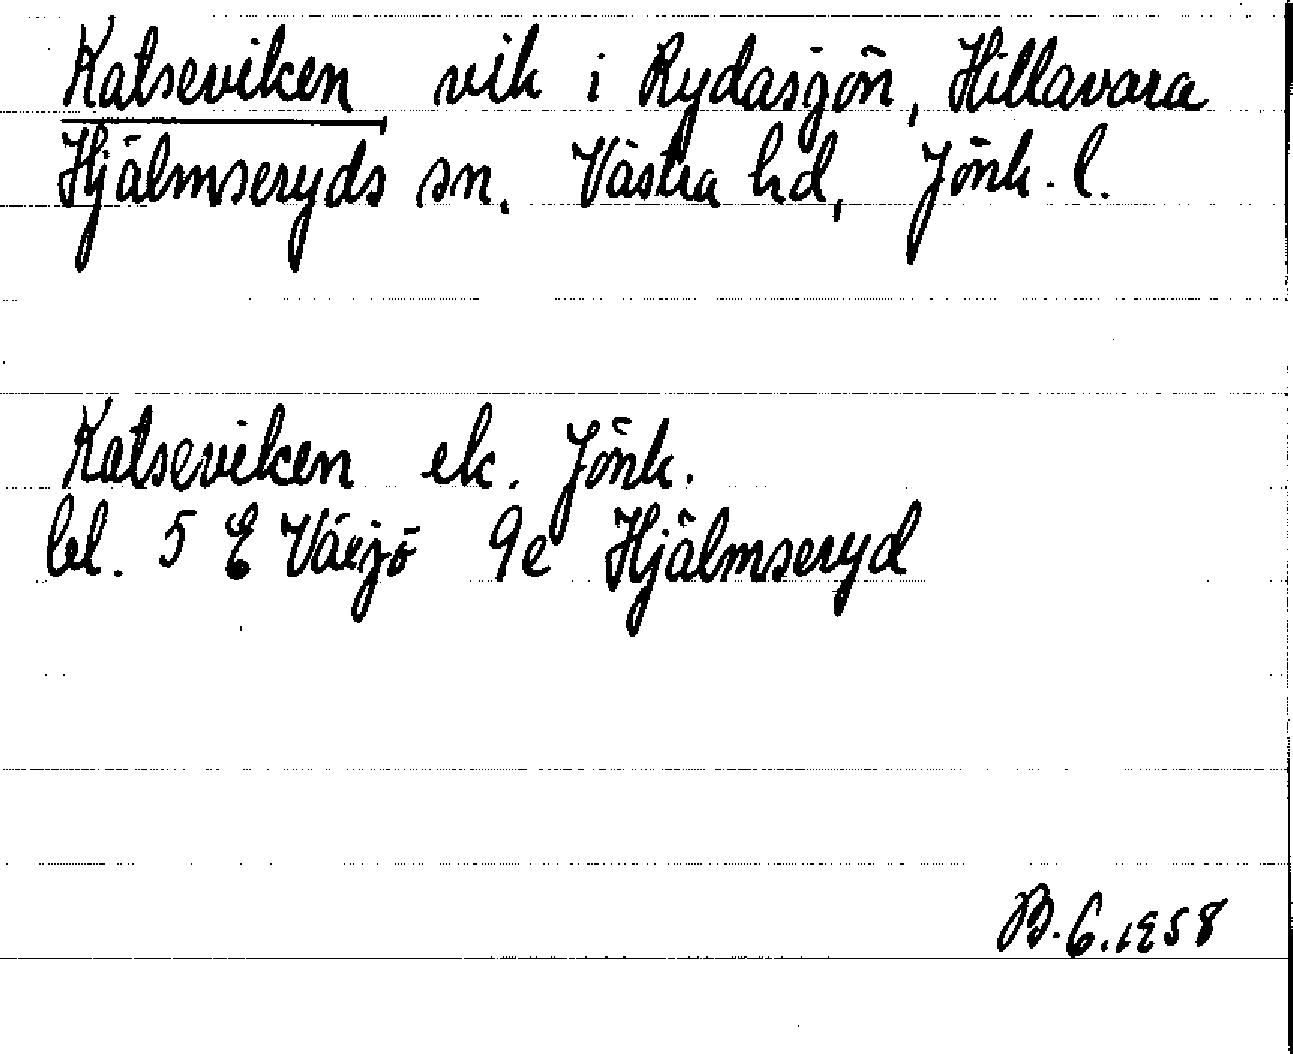 Katseviken vik i Rydasjön, Hillavara
Hjälmseryds sn. Västra hd, Jönk. l.
Katseviken ek. Jönk.
bl. 5 E Växjö 9e Hjälmseryd
B.G. 1958